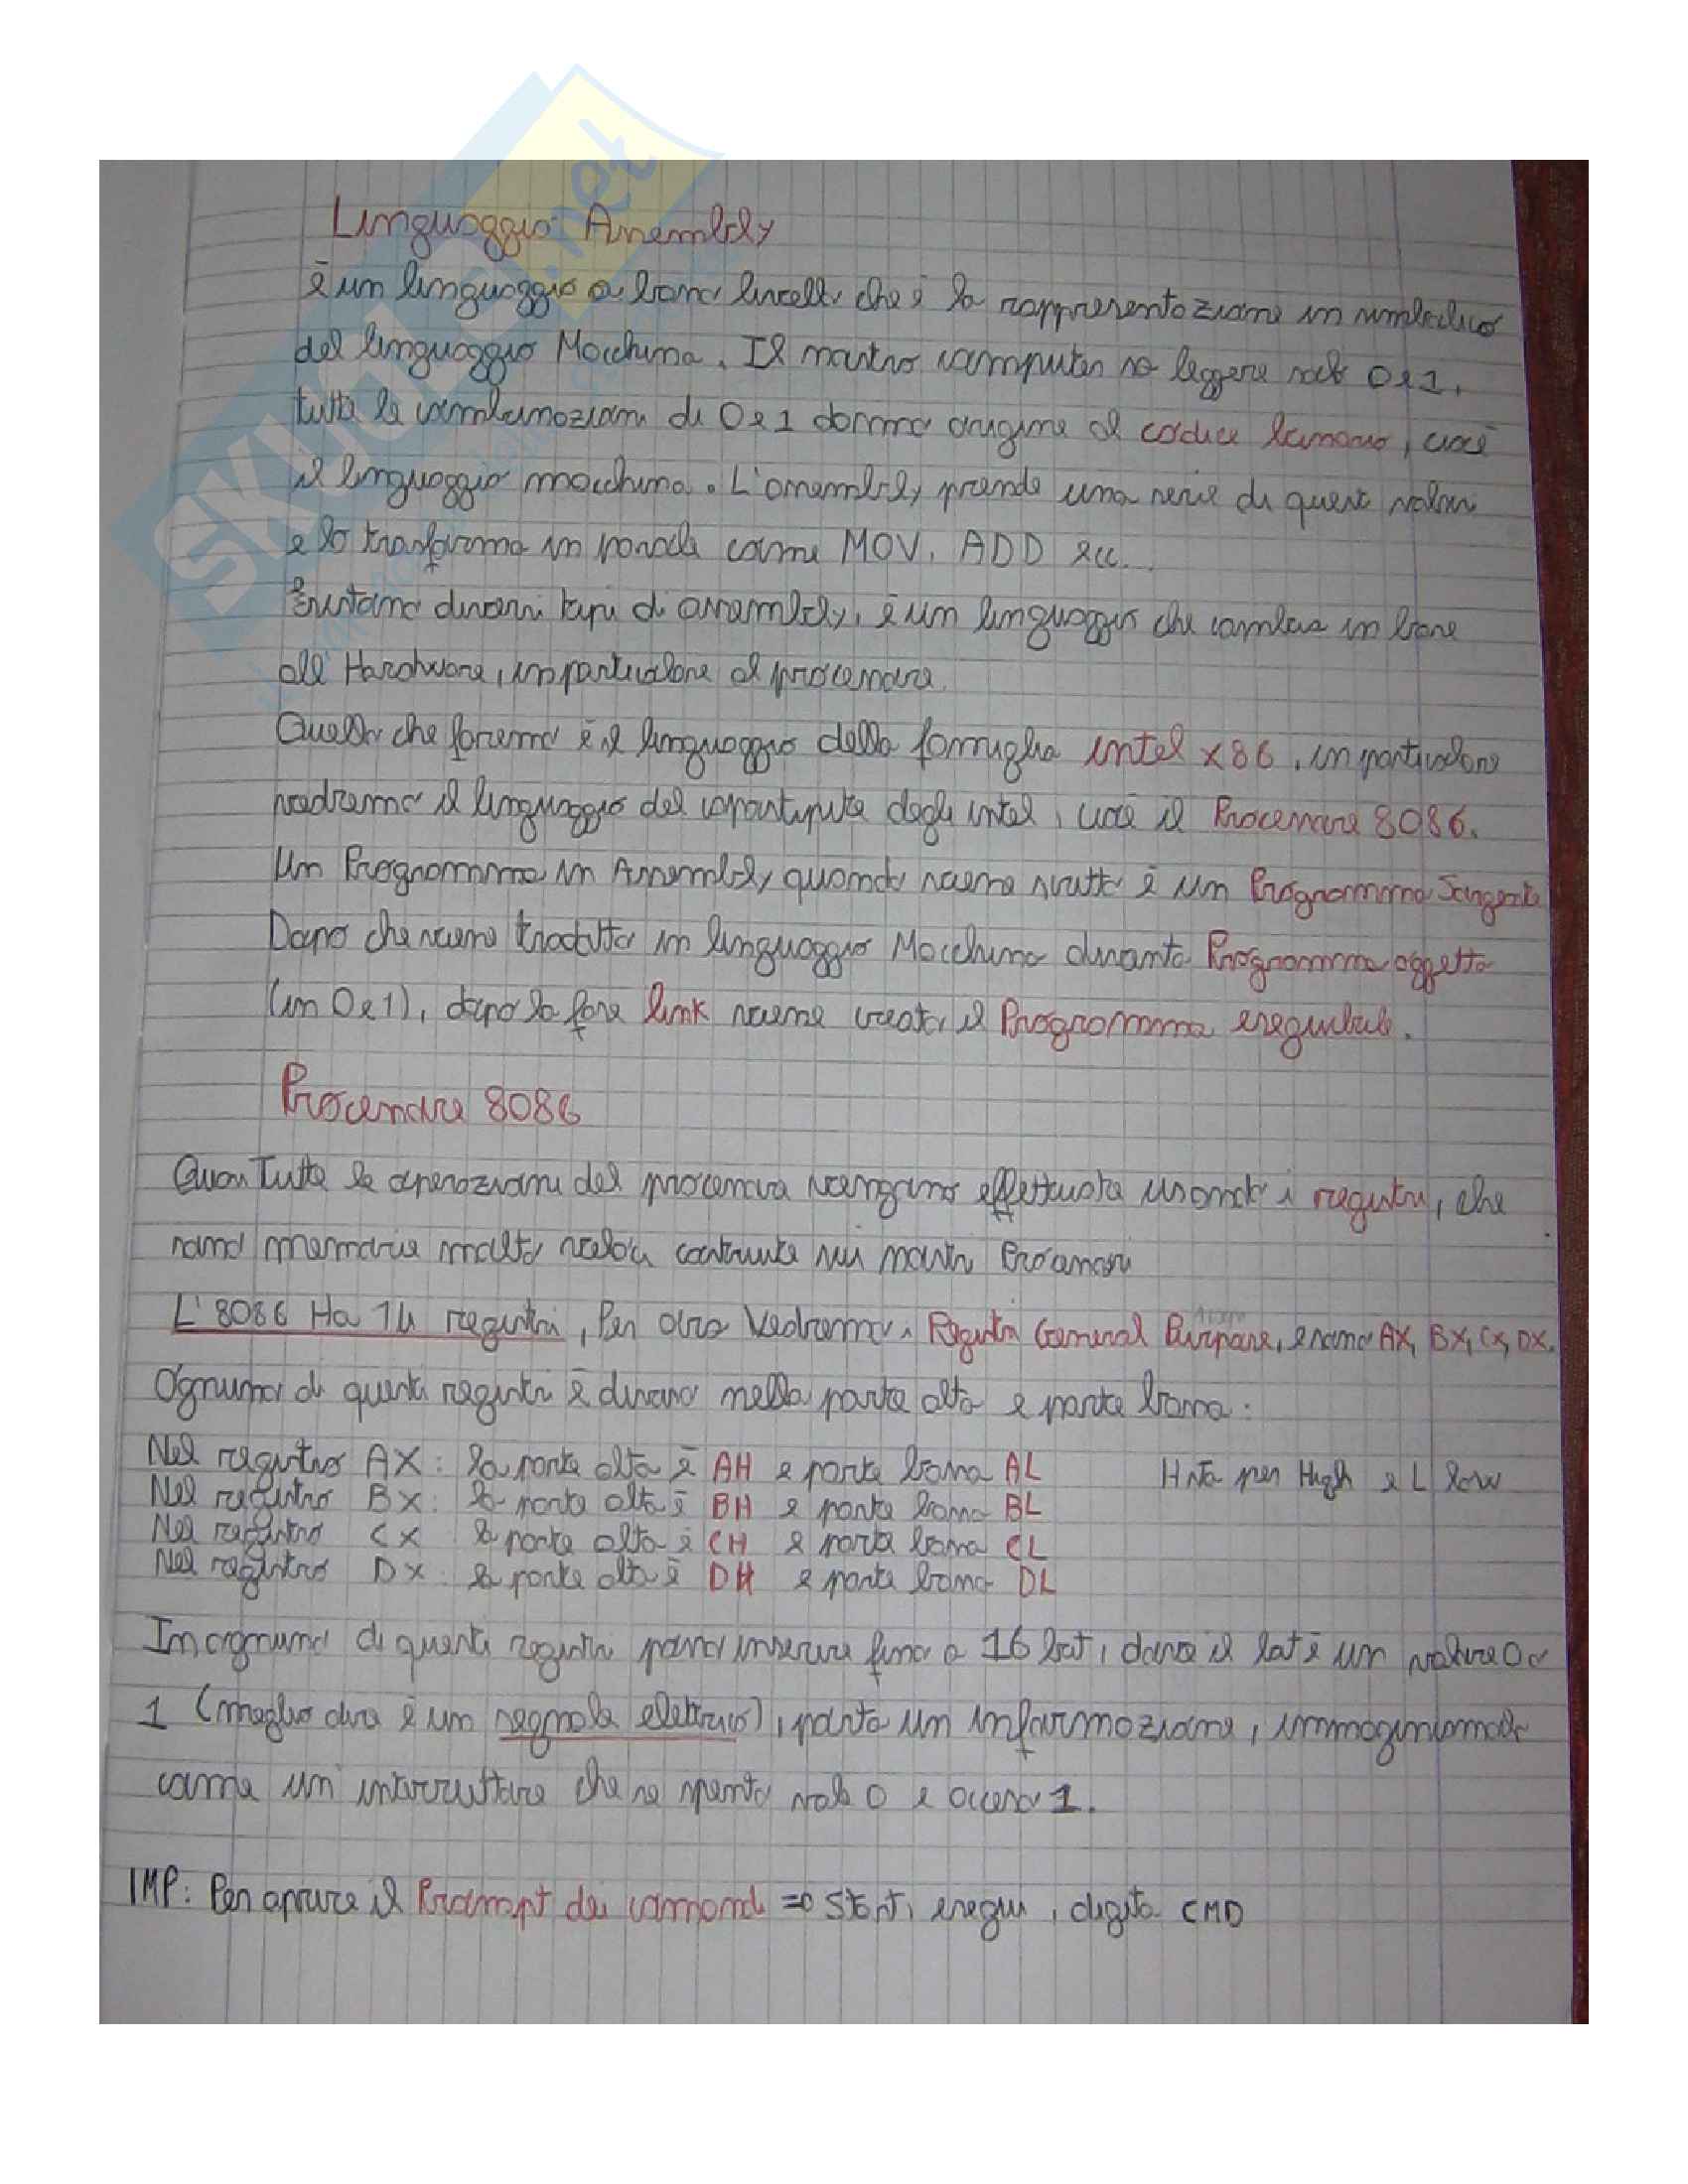 SKUOLA.net
Linguaggio Assembly
è un linguaggio a basso livello che è la rappresentazione in simbolico
del linguaggio Macchina. Il nostro computer sa leggere solo 0 e 1,
tutte le combinazioni di 0 e 1 danno origine al codice binario, cioè
il linguaggio macchina. L'assembly prende una serie di questi valori
e lo trasforma in parole come MOV, ADD ecc...
Esistono diversi tipi di assembly, è un linguaggio che cambia in base
all'Hardware, in particolare al processore.
Quello che faremo è il linguaggio della famiglia intel x86, in particolare
vedremo il linguaggio del capostipite degli intel, cioè il Processore 8086.
Un Programma in Assembly quando viene scritto è un Programma Sorgente
Dopo che viene tradotto in linguaggio Macchina diventa Programma oggetto
(in 0 e 1), dopo la fase link viene creato il Programma eseguibile.
Processore 8086
Quasi Tutte le operazioni del processore vengono effettuate usando i registri, che
sono memorie molto veloci costruite nei nostri Processori
L'8086 Ha 14 registri, Per ora Vedremo i Registri General Purpose, e sono AX, BX, CX, DX.
Ognuno di questi registri è diviso nella parte alta e parte bassa:
Nel registro AX: la parte alta è AH e parte bassa AL H sta per High e L low
Nel registro BX: la parte alta è BH e parte bassa BL
Nel registro CX la parte alta è CH e parte bassa CL
Nel registro DX: la parte alta è DH e parte bassa DL
In ognuno di questi registri posso inserire fino a 16 bit, dove il bit è un valore 0 o
1 (meglio dire è un segnale elettrico), porta un informazione, immaginiamolo
come un interruttore che se spento vale 0 e acceso 1.
IMP: Per aprire il Prompt dei comandi => Start, esegui, digita CMD